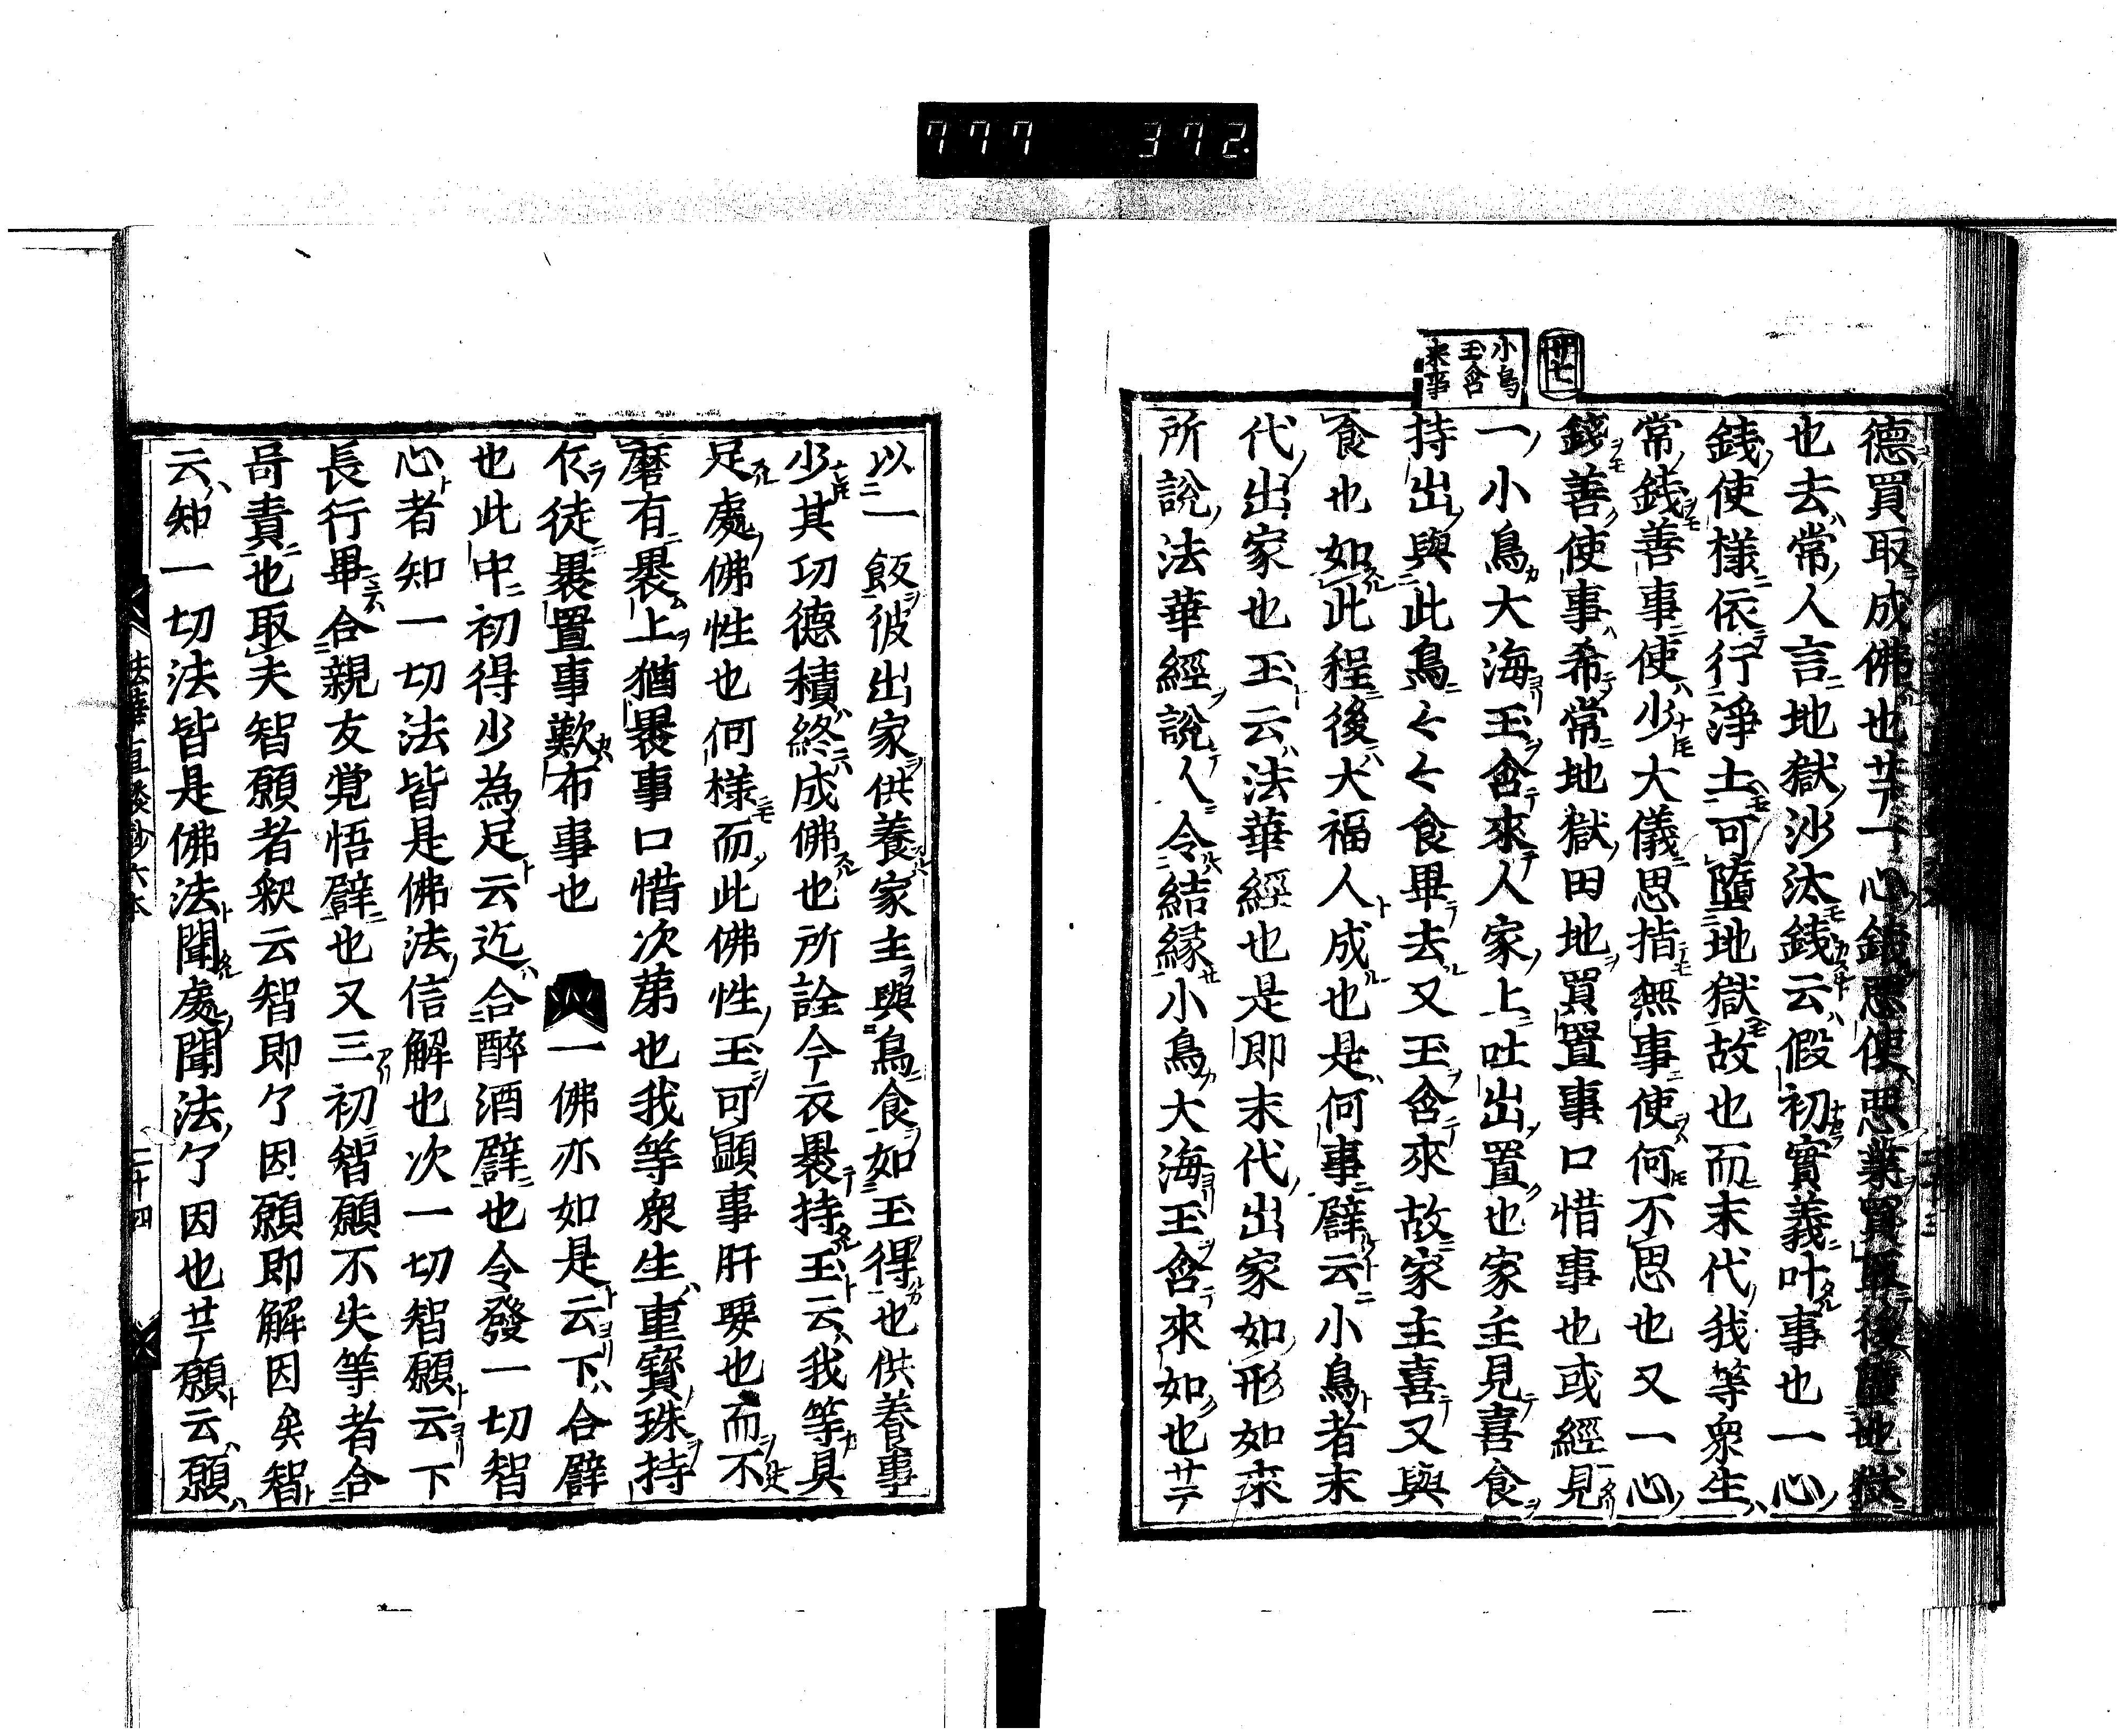 777 372.
廿七
小鳥
玉含
來事
德買取成佛也䒑一心錢思使惡業買取後墮地獄
也去常人言地獄沙汰錢云假初實義叶事也一心
錢使樣依行淨土可墮地獄故也而末代我等衆生
常錢善事使少大儀思指無事使何不思也又一心
錢善使事希常地獄田地買置事口惜事也或經見
一小鳥大海玉含來人家上吐出置也家主見喜食
持出與此鳥々々食畢去又玉含來故家主喜又與
食也如此程後大福人成也是何事譬云小鳥者末
代出家也玉云法華經也是即末代出家如形如來
所說法華經說人令結緣小鳥大海玉含來如也
以一飯彼出家供養家主與鳥食如玉得也供養事
少其功德積終成佛也所詮今衣裹持玉云我等具
足處佛性也何樣而此佛性玉可顯事肝要也而不
磨有裹上猶裹事口惜次第也我等衆生重寶珠持
徒裹置事歎布事也 一佛亦如是云下合譬
也此中初得少為足云迄合醉酒譬也令發一切智
心者知一切法皆是佛法信解也次一切智願云下
長行畢合親友覚悟譬也又三初智願不失等者合
呵責也取夫智願者釈云智即了因願即解因矣智
云知一切法皆是佛法聞處聞法了因也願云願
法華直談鈔六末 二十四